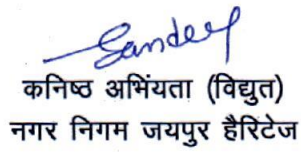 Sandeep
कनिष्ठ अभिंयता (विद्युत)
नगर निगम जयपुर हैरिटेज